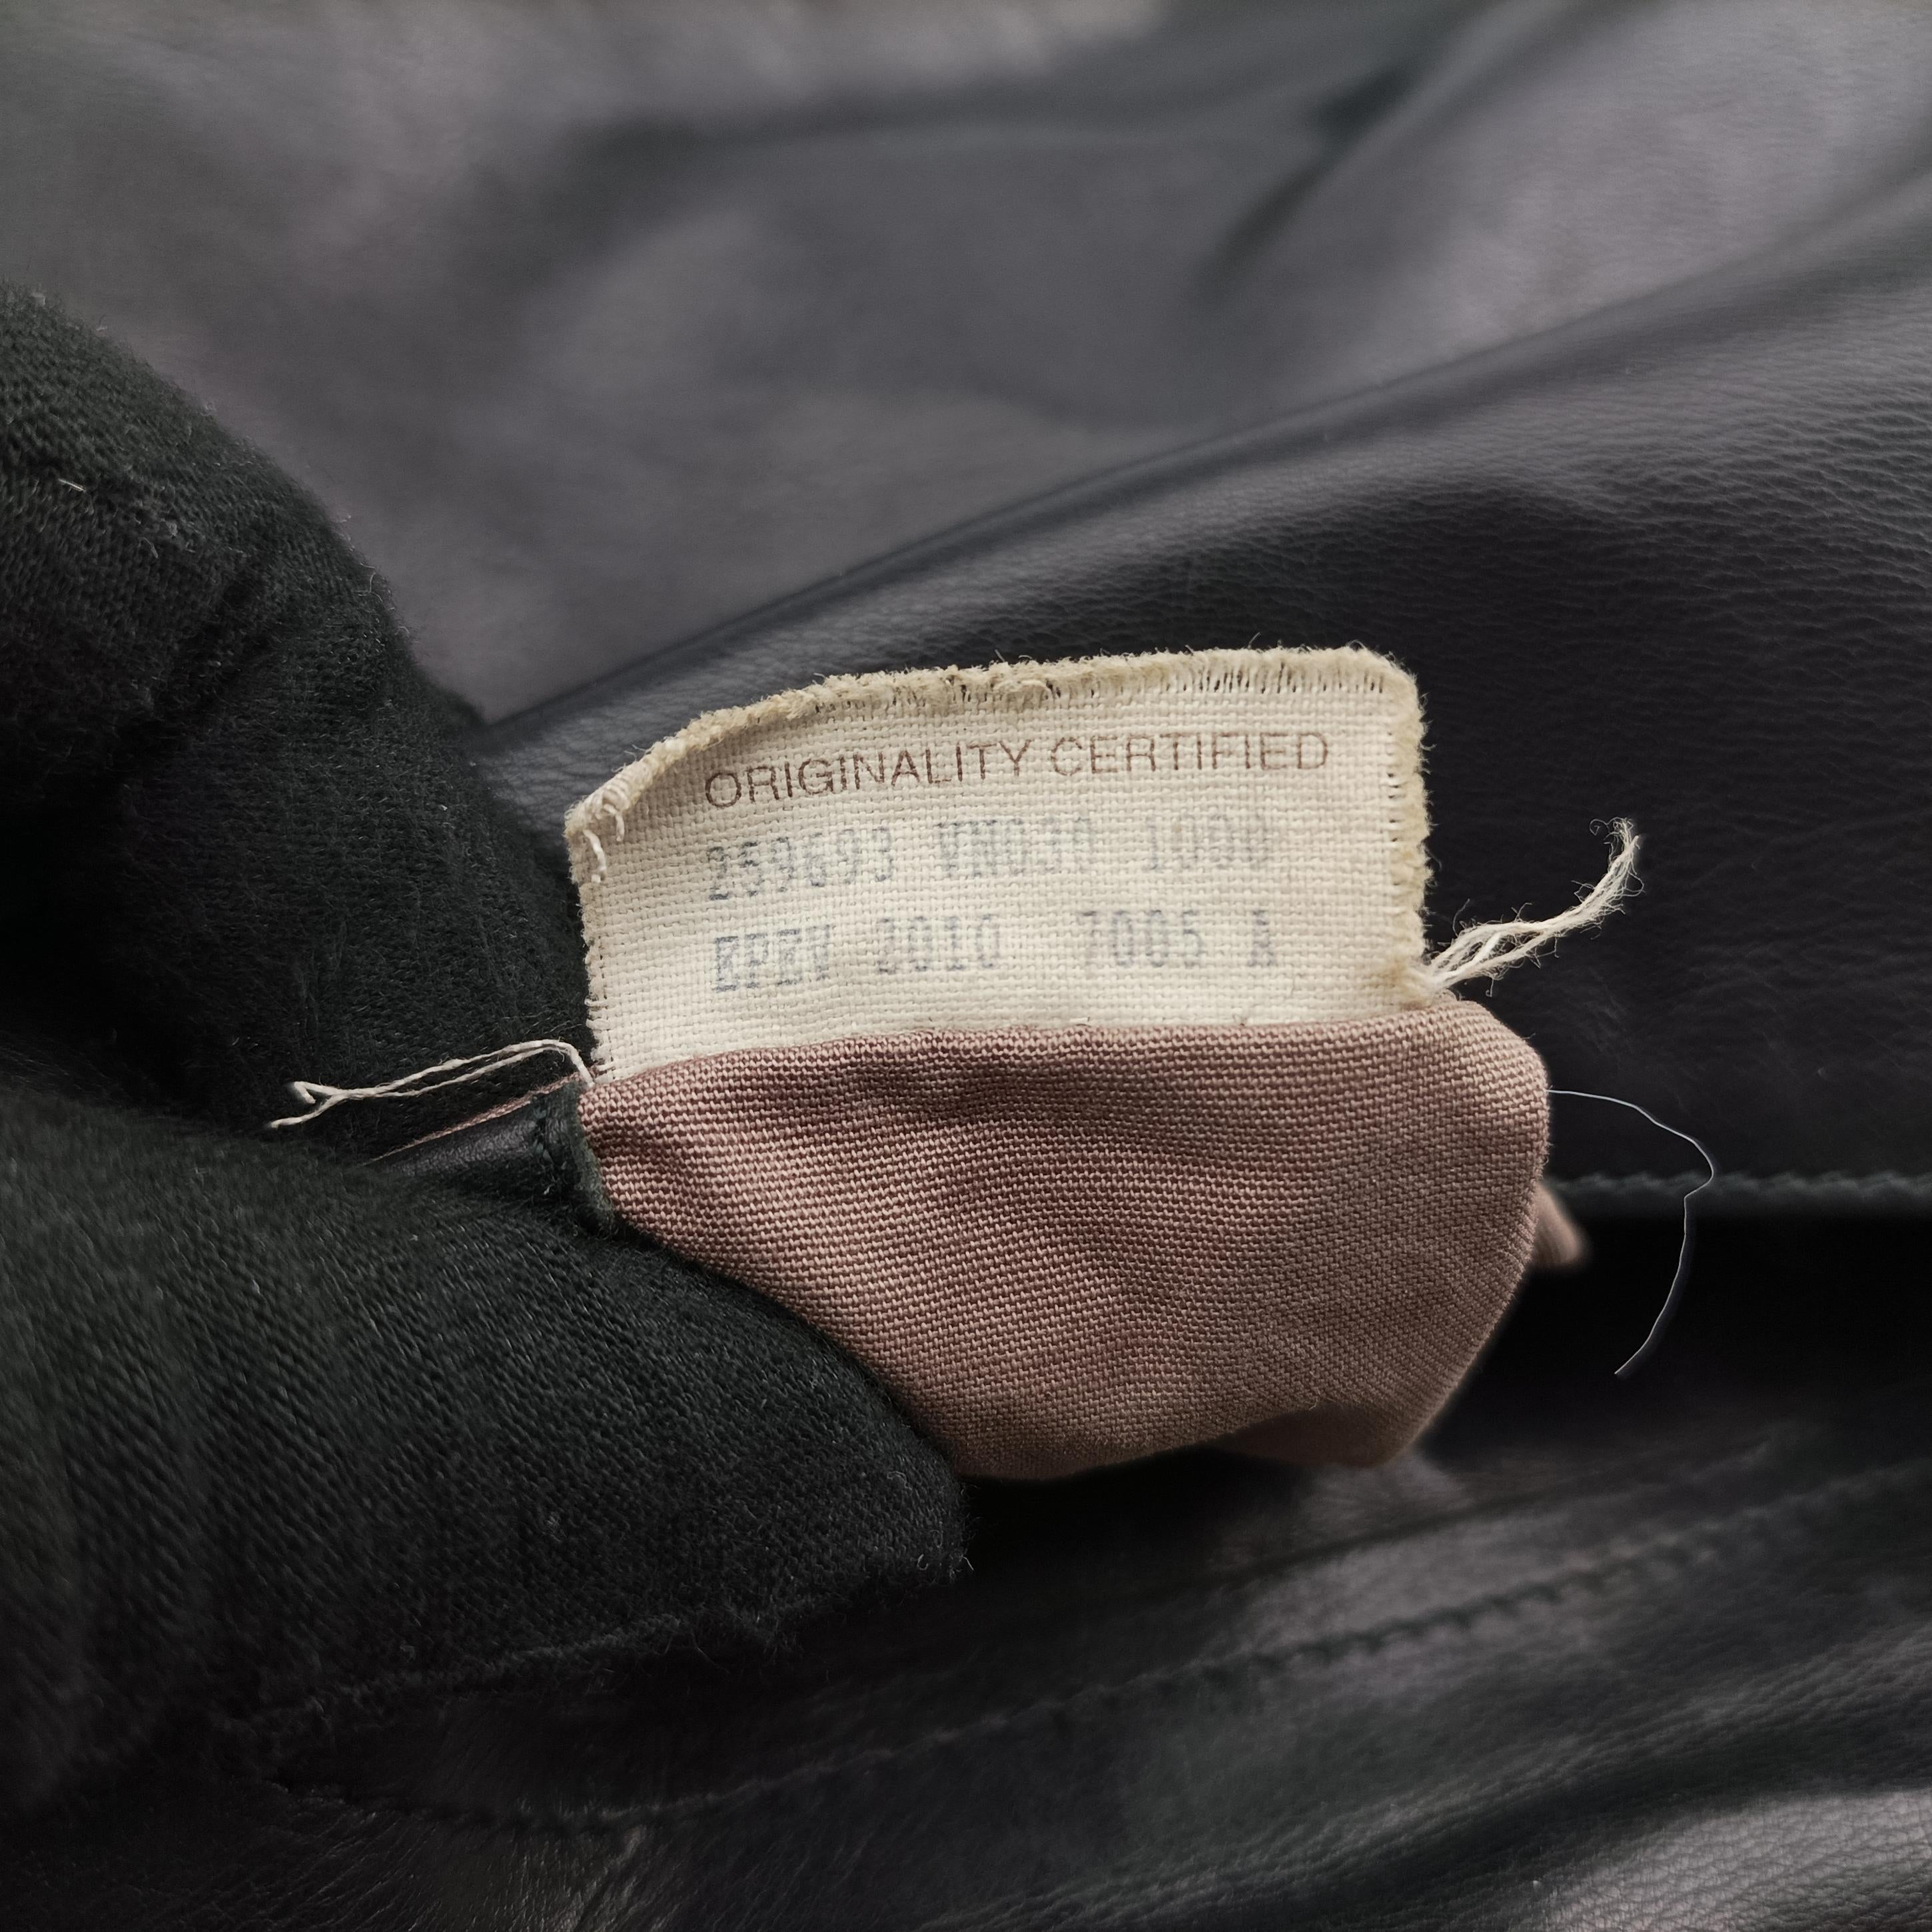 ORIGINALITY CERTIFIED
259693 VN030 1000
EPEV 2010 7005 A